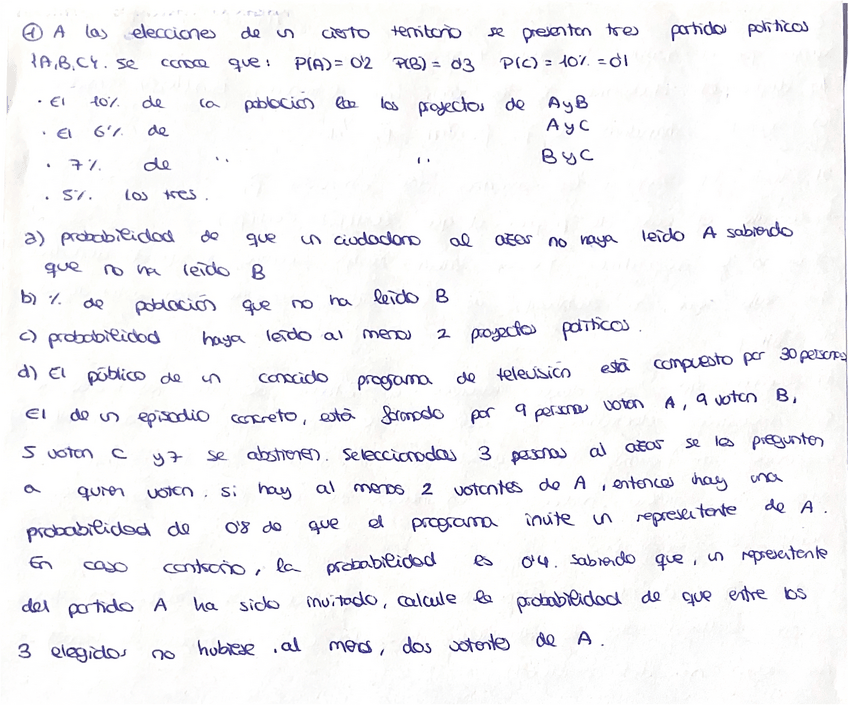 ① A las elecciones de un cierto territorio se presentan tres partidos políticos
{A,B,C}. Se conoce que: P(A)= 0'2 P(B) = 0'3 P(C) = 10% = 0'1
· El 10% de la población lee los proyectos de A y B
· El 6% de A y C
· 7% de " " B y C
· 5% los tres.
a) probabilidad de que un ciudadano al azar no haya leído A sabiendo
que no ha leído B
b) % de población que no ha leído B
c) probabilidad haya leído al menos 2 proyectos políticos.
d) El público de un conocido programa de televisión está compuesto por 30 personas
El de un episodio concreto, está formado por 9 personas voten A, 9 voten B,
5 voten C y 7 se abstienen. Seleccionadas 3 personas al azar se les pregunten
a quien voten. Si hay al menos 2 votantes de A, entonces hay una
probabilidad de 0'8 de que el programa invite un representante de A.
En caso contrario, la probabilidad es 0'4. Sabiendo que, un representante
del partido A ha sido invitado, calcule la probabilidad de que entre los
3 elegidos no hubiese, al menos, dos votantes de A.